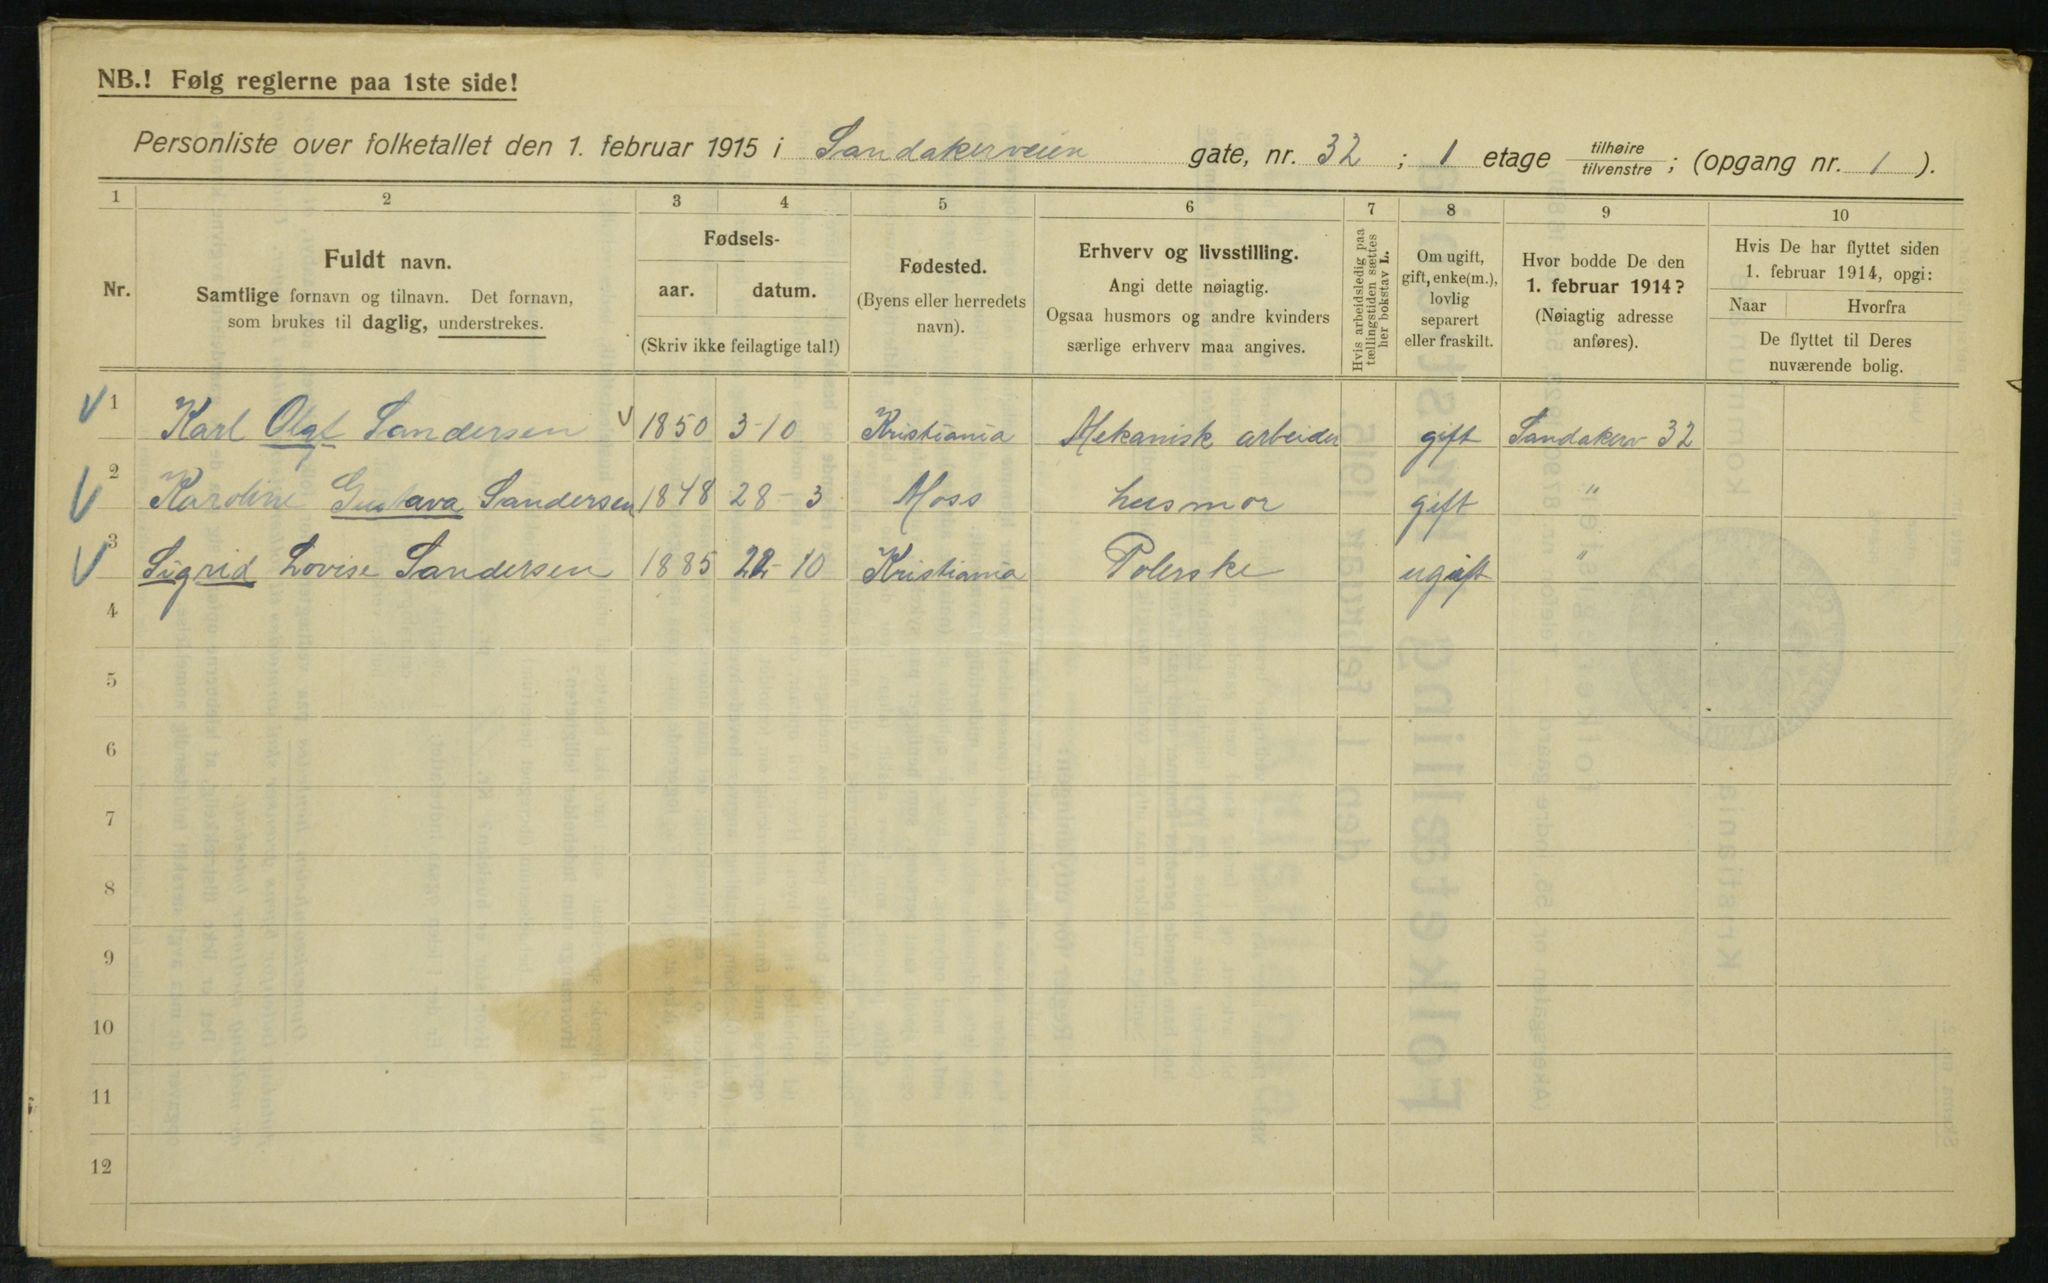 NB.! Følg reglerne paa 1ste side!
Personliste over folketallet den 1. februar 1915 i Sandakerveien gate, nr. 32 ; 1 etage tilhøire / tilvenstre ; (opgang nr. 1 ).
1 2 3 4 5 6 7 8 9 10
Nr.
Fuldt navn.
Samtlige fornavn og tilnavn. Det fornavn,
som brukes til daglig, understrekes.
Fødsels-
aar. datum.
(Skriv ikke feilagtige tal!)
Fødested.
(Byens eller herredets
navn).
Erhverv og livsstilling.
Angi dette nøiagtig.
Ogsaa husmors og andre kvinders
særlige erhverv maa angives.
Hvis arbeidsledig paa
tællingstiden sættes
her bokstav L.
Om ugift,
gift, enke(m.),
lovlig
separert
eller fraskilt.
Hvor bodde De den
1. februar 1914?
(Nøiagtig adresse
anføres).
Hvis De har flyttet siden
1. februar 1914, opgi:
Naar Hvorfra
De flyttet til Deres
nuværende bolig.
1 Karl Olaf Sandersen 1850 3-10 Kristiania Mekanisk arbeider gift Sandakerv 32
2 Karoline Gustava Sandersen 1848 28-3 Moss husmor gift "
3 Sigrid Lovise Sandersen 1885 22-10 Kristiania Polerske ugift "
4
5
6
7
8
9
10
11
12